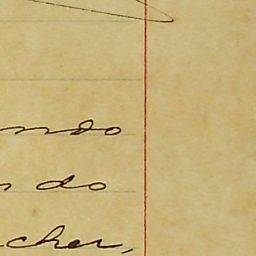 ndo
do
cher,